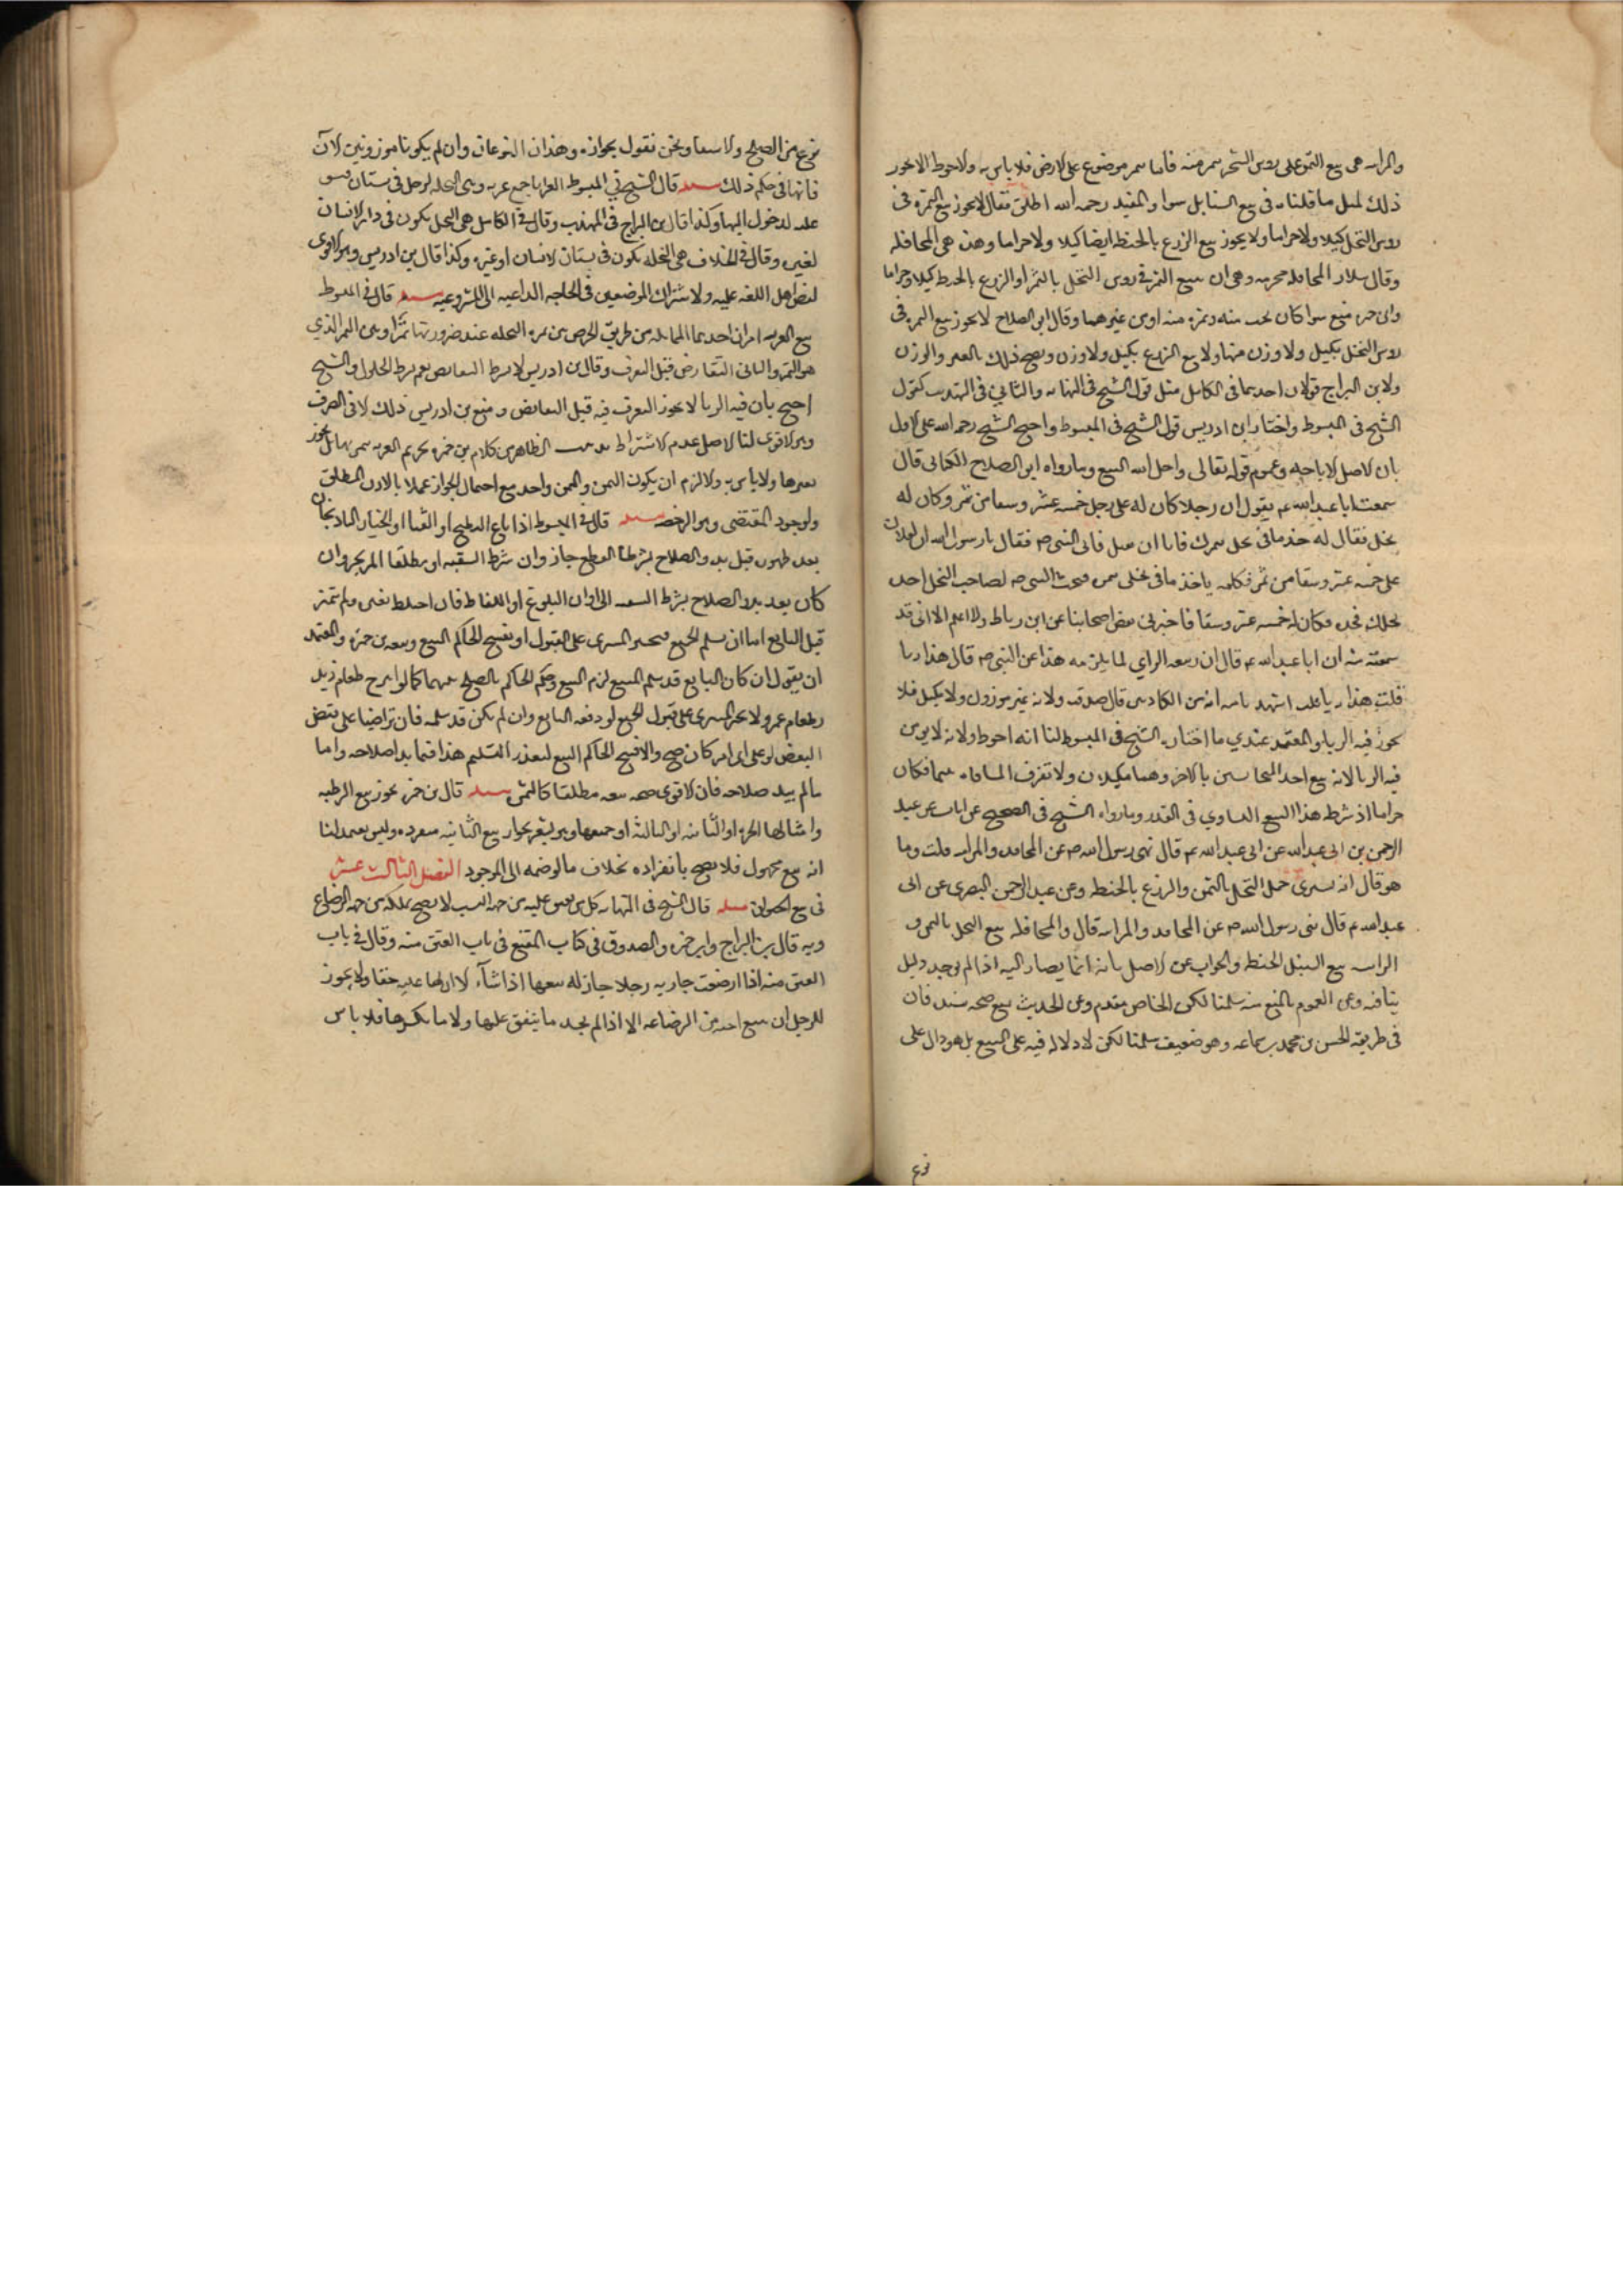 والمزابنه هى بيع التمر على روس الشجر بتمر منه فاما بتمر موضوع على الارض فلا باس به والاحوط ان لا يجوز
ذلك لمثل ما قلناه فى بيع السنابل سوا والمفيد رحمه الله اطلق فقال لا يجوز بيع الثمره فى
روس النخل كيلا ولا جزافا ولا يجوز بيع الزرع بالحنطه ايضا كيلا ولا جزافا وهذه هى المحاقله
وقال سلار المحاقله محرمه وهى ان يبيع الثمر فى روس النخل بالتمر او الزرع بالحنطه كيلا وجزافا
وابن حمزه منع سوا كان بحب منه وتمره منه او من غيرهما وقال ابو الصلاح لا يجوز بيع الثمره فى
روس النخل بكيل ولا وزن منها ولا بيع الزرع بكيل ولا وزن ويصح ذلك بالعين والورق
ولابن البراج قولان احدهما فى الكامل مثل قول الشيخ فى النهايه والثانى فى المهذب كقول
الشيخ فى المبسوط واختار ابن ادريس قول الشيخ فى المبسوط واحتج الشيخ رحمه الله على الاول
بان الاصل الاباحه وعموم قوله تعالى واحل الله البيع وبما رواه ابو الصلاح الكنانى قال
سمعت ابا عبد الله ع يقول ان رجلا كان له على رجل خمسه عشر وسقا من تمر وكان له
نخل فقال له خذ ما فى نخلى بتمرك فابا ان يقبل فاتى النبى ص فقال يا رسول الله ان لفلان
على خمسه عشر وسقا من تمر فكلمه ياخذ ما فى نخلى بتمره فبعث النبى ص لصاحب النخل اجذذ
نخلك فجذه فكان له خمسه عشر وسقا فاخبرنى بعض اصحابنا عن ابن رباط ولا اعلم الا انى قد
سمعته منه ان ابا عبد الله ع قال ان ربيعه الراى لما بلغه هذا عن النبى ص قال هذا ربا
قلت اشهد بالله انه من الكاذبين قال صدقت ولانه غير موزون ولا مكيل فلا
يجوز فيه الربا والمعتمد عندي ما اختاره الشيخ فى المبسوط لنا انه احوط ولانه لا يومن
فيه الربا لانه بيع احد المتجانسين بالاخر وهما مكيلان ولا تعرف المساواه بينهما فكان
حراما اذ شرط هذا البيع التساوي فى القدر وما رواه الشيخ فى الصحيح عن ابان عن عبد
الرحمن بن ابى عبد الله عن ابى عبد الله ع قال نهى رسول الله ص عن المحاقله والمزابنه قلت وما
هو قال ان يشترى حمل النخل بالتمر والزرع بالحنطه وعن عبد الرحمن البصرى عن ابى
عبد الله ع قال نهى رسول الله ص عن المحاقله والمزابنه قال والمحاقله بيع النخل بالتمر و
المزابنه بيع السنبل بالحنطه والجواب عن الاصل بانه انما يصار اليه اذا لم يوجد دليل
ينافيه وعن العموم بالمنع منه سلمنا لكن الخاص مقدم وعن الحديث بمنع صحه سنده فان
فى طريقه الحسن بن محمد بن سماعه وهو ضعيف سلمنا لكن لا دلاله فيه على البيع بل هو دال على
نوع
نوع من الصلح ولا بيعا ونحن نقول بجوازه وهذان النوعان وان لم يكونا موزونين الان
فانهما فى حكم ذلك مسله قال الشيخ فى المبسوط العرايا جمع عريه وهى النخله لرجل فى بستان يشق
عليه الدخول اليها وكذا قال ابن البراج فى المهذب وقال فى الكامل هى النخل يكون فى دار الانسان
لغيره وقال فى الخلاف هى النخله تكون فى بستان لانسان او غيره وكذا قال ابن ادريس وهو الاقوى
لنص اهل اللغه عليه ولاشتراك الموضعين فى الحاجه الداعيه الى المشروعيه مسله قال فى المبسوط
بيع العريه امران احدهما المماثله من طريق الخرص بين ثمره النخله عند ضرورتها تمرا وبين التمر الذي
هو الثمن والثانى التقابض قبل التفرق وقال ابن ادريس لا يشترط التقابض نعم يشترط الحلول والشيخ
احتج بان فيه الربا لا يجوز التفرق فيه قبل التقابض ومنع ابن ادريس ذلك لا فى الصرف
وهو الاقوى لنا الاصل عدم الاشتراط الظاهر من كلام ابن حمزه تحريم العريه
ولا باس به والا لزم ان يكون الثمن والمثمن واحد مع احتمال الجواز عملا بالاذن المطلق
ولوجود المقتضى وهو الرخصه مسله قال فى المبسوط اذا باع البطيخ او القثا او الخيار او الباذنجان
بعد ظهوره قبل بدو الصلاح بشرط القطع جاز وان شرط التبقيه او مطلقا لم يجز وان
كان بعد بدو الصلاح بشرط التبقيه الى اوان البلوغ او اللقاط فان اختلط بغيره ولم تميز
قيل للبايع اما ان يسلم الجميع فيجبر المشترى على القبول او يفسخ الحاكم البيع وتبعه ابن حمزه والمعتمد
ان يقول ان كان البايع قد سلم المبيع لزم البيع وحكم الحاكم بالصلح بينهما كما لو امتزج طعام زيد
بطعام عمرو ولا يجبر المشترى على قبول الجميع لو دفعه البايع وان لم يكن قد سلمه فان تراضيا على قبض
البعض او على اى امر كان صح والا فسخ الحاكم البيع لتعذر التسليم هذا فيما بدا صلاحه واما
ما لم يبد صلاحه فان الاقوى صحه بيعه مطلقا كالثمره مسله قال ابن حمزه يجوز بيع الرطبه
وامثالها الجزه او الثانيه او الثالثه او جميعها وهو يشعر بجواز بيع الثانيه منفرده وليس بمعتمد لنا
انه بيع مجهول فلا يصح بانفراده بخلاف ما لو ضمه الى الموجود الفصل الثالث عشر
فى بيع الحيوان مسله قال الشيخ فى النهايه كل من ينعتق عليه من جهه النسب لا يصح تملكه من جهه الرضاع
وبه قال ابن البراج وابن حمزه والصدوق فى كتاب المقنع فى باب العتق منه وقال فى باب
العتق منه اذا ارضعت جاريه رجلا جاز له بيعها اذا شآء الا ان لها عليه حقا ولا يجوز
للرجل ان يبيع اخته من الرضاعه الا اذا لم يجد ما ينفق عليها ولا ما يكسوها فلا باس